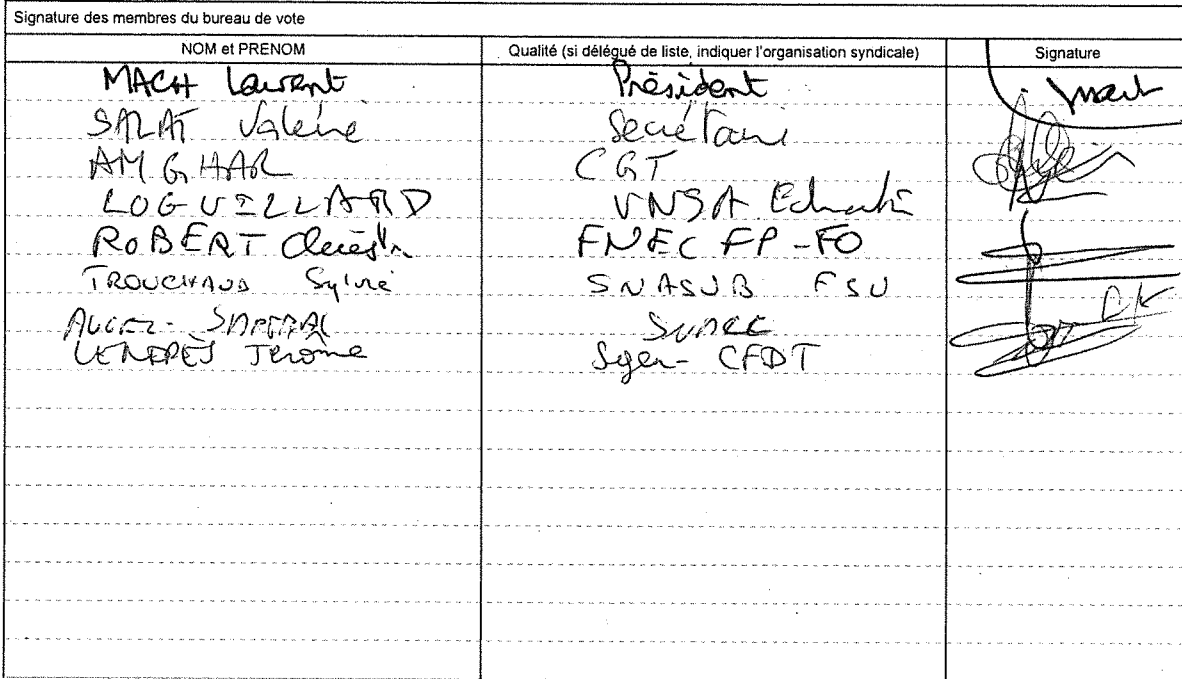 Signature des membres du bureau de vote
NOM et PRENOM Qualité (si délégué de liste, indiquer l'organisation syndicale) Signature
MACH Laurent Président
SALAT Valérie Secrétaire
AMGHAR CGT
LOGUILLARD UNSA Education
ROBERT FNEC FP-FO
TROUCHAUD Sylvie SNASUB FSU
Jérôme Sgen-CFDT